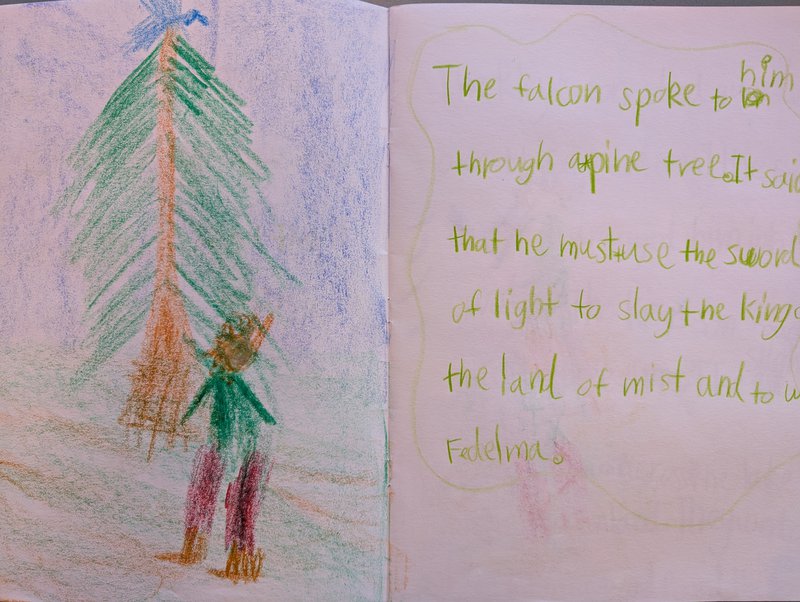 The falcon spoke to him
through a pine tree. It said
that he must use the sword
of light to slay the king
the land of mist and to
Fedelma.